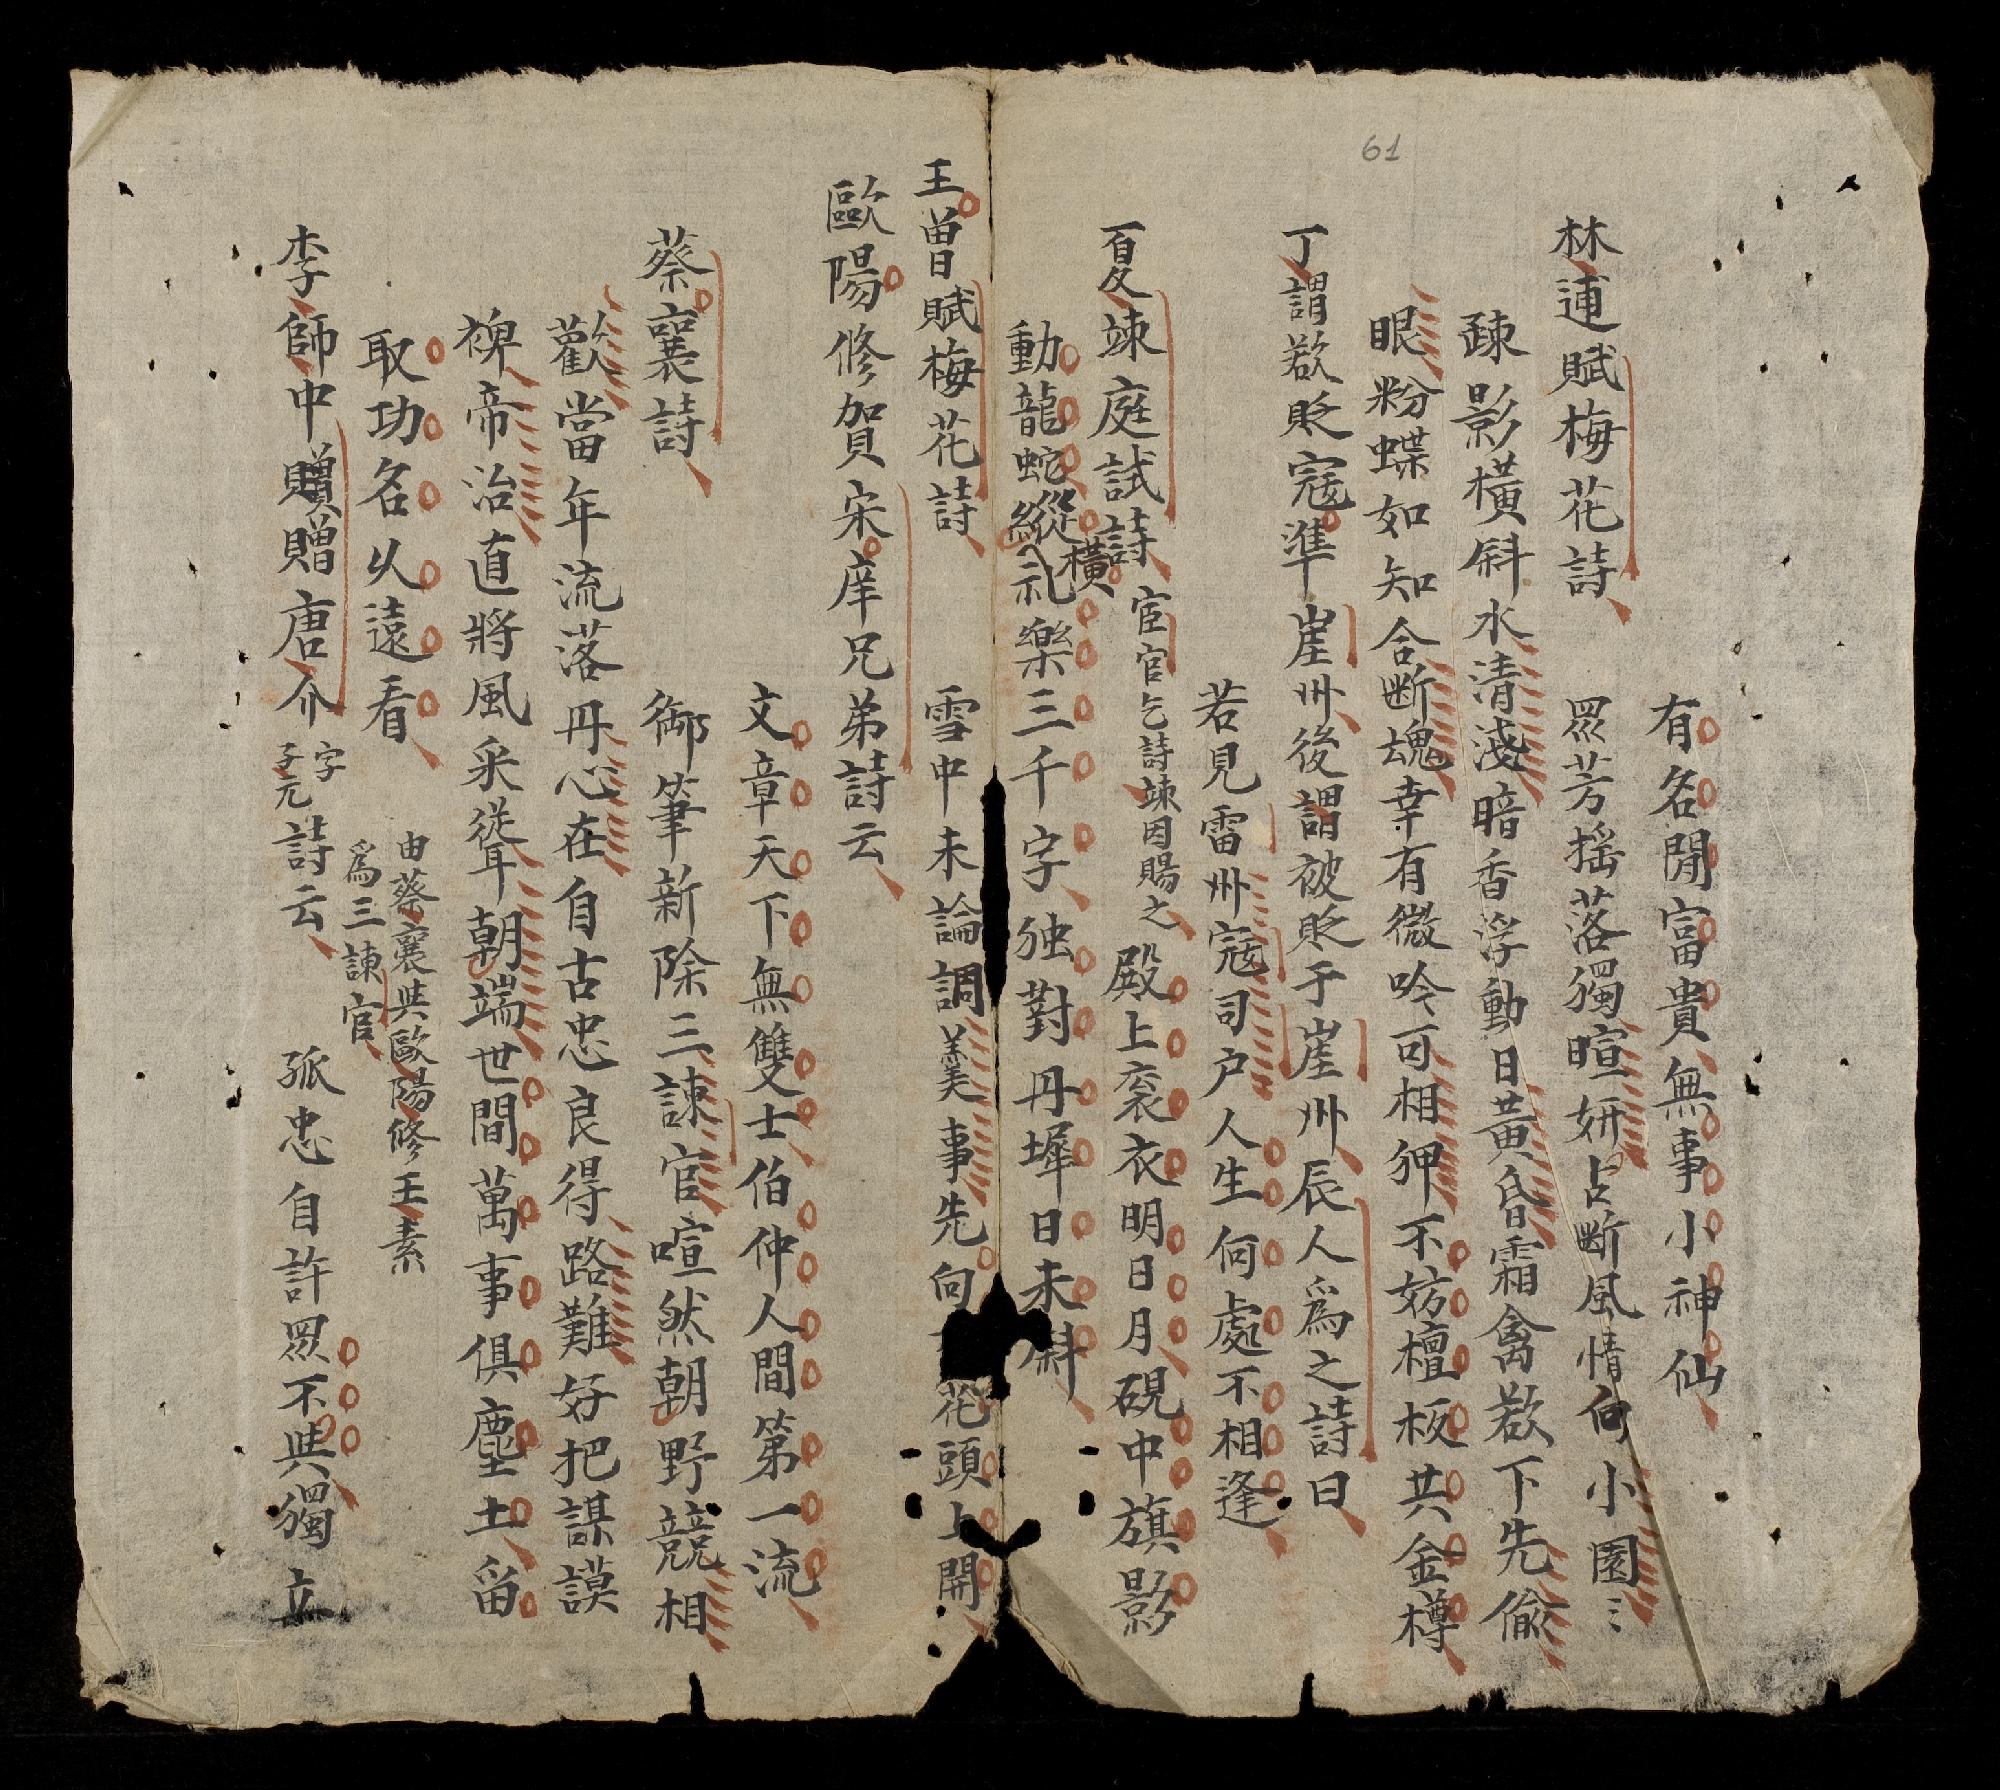 61
有名閒富貴無事小神仙
林逋賦梅花詩 眾芳搖落獨暄妍占断風情向小園〻
疎影橫斜水清淺暗香浮動日黃昏霜禽欲下先偷
眼粉蝶如知合断魂幸有微吟可相狎不妨檀板共金樽
丁謂欲貶寇準崖州後謂被貶于崖州辰人爲之詩曰
若見雷州寇司户人生何處不相逢
夏竦庭試詩 宦官乞詩竦因賜之 殿上衮衣明日月硯中旗影
動龍蛇縱橫礼樂三千字独對丹墀日未斜
王曾賦梅花詩 雪中未論調羹事先向 花頭上開
歐陽修賀宋庠兄弟詩云
文章天下無雙士伯仲人間第一流
蔡襄詩 御筆新除三諫官喧然朝野競相
歡當年流落丹心在自古忠良得路難好把謀謨
裨帝治直將風采聳朝端世間萬事俱塵土留
取功名乆遠看 由蔡襄與歐陽修王素
爲三諫官
李師中贈贈唐介 字子元 詩云 孤忠自許眾不與獨立